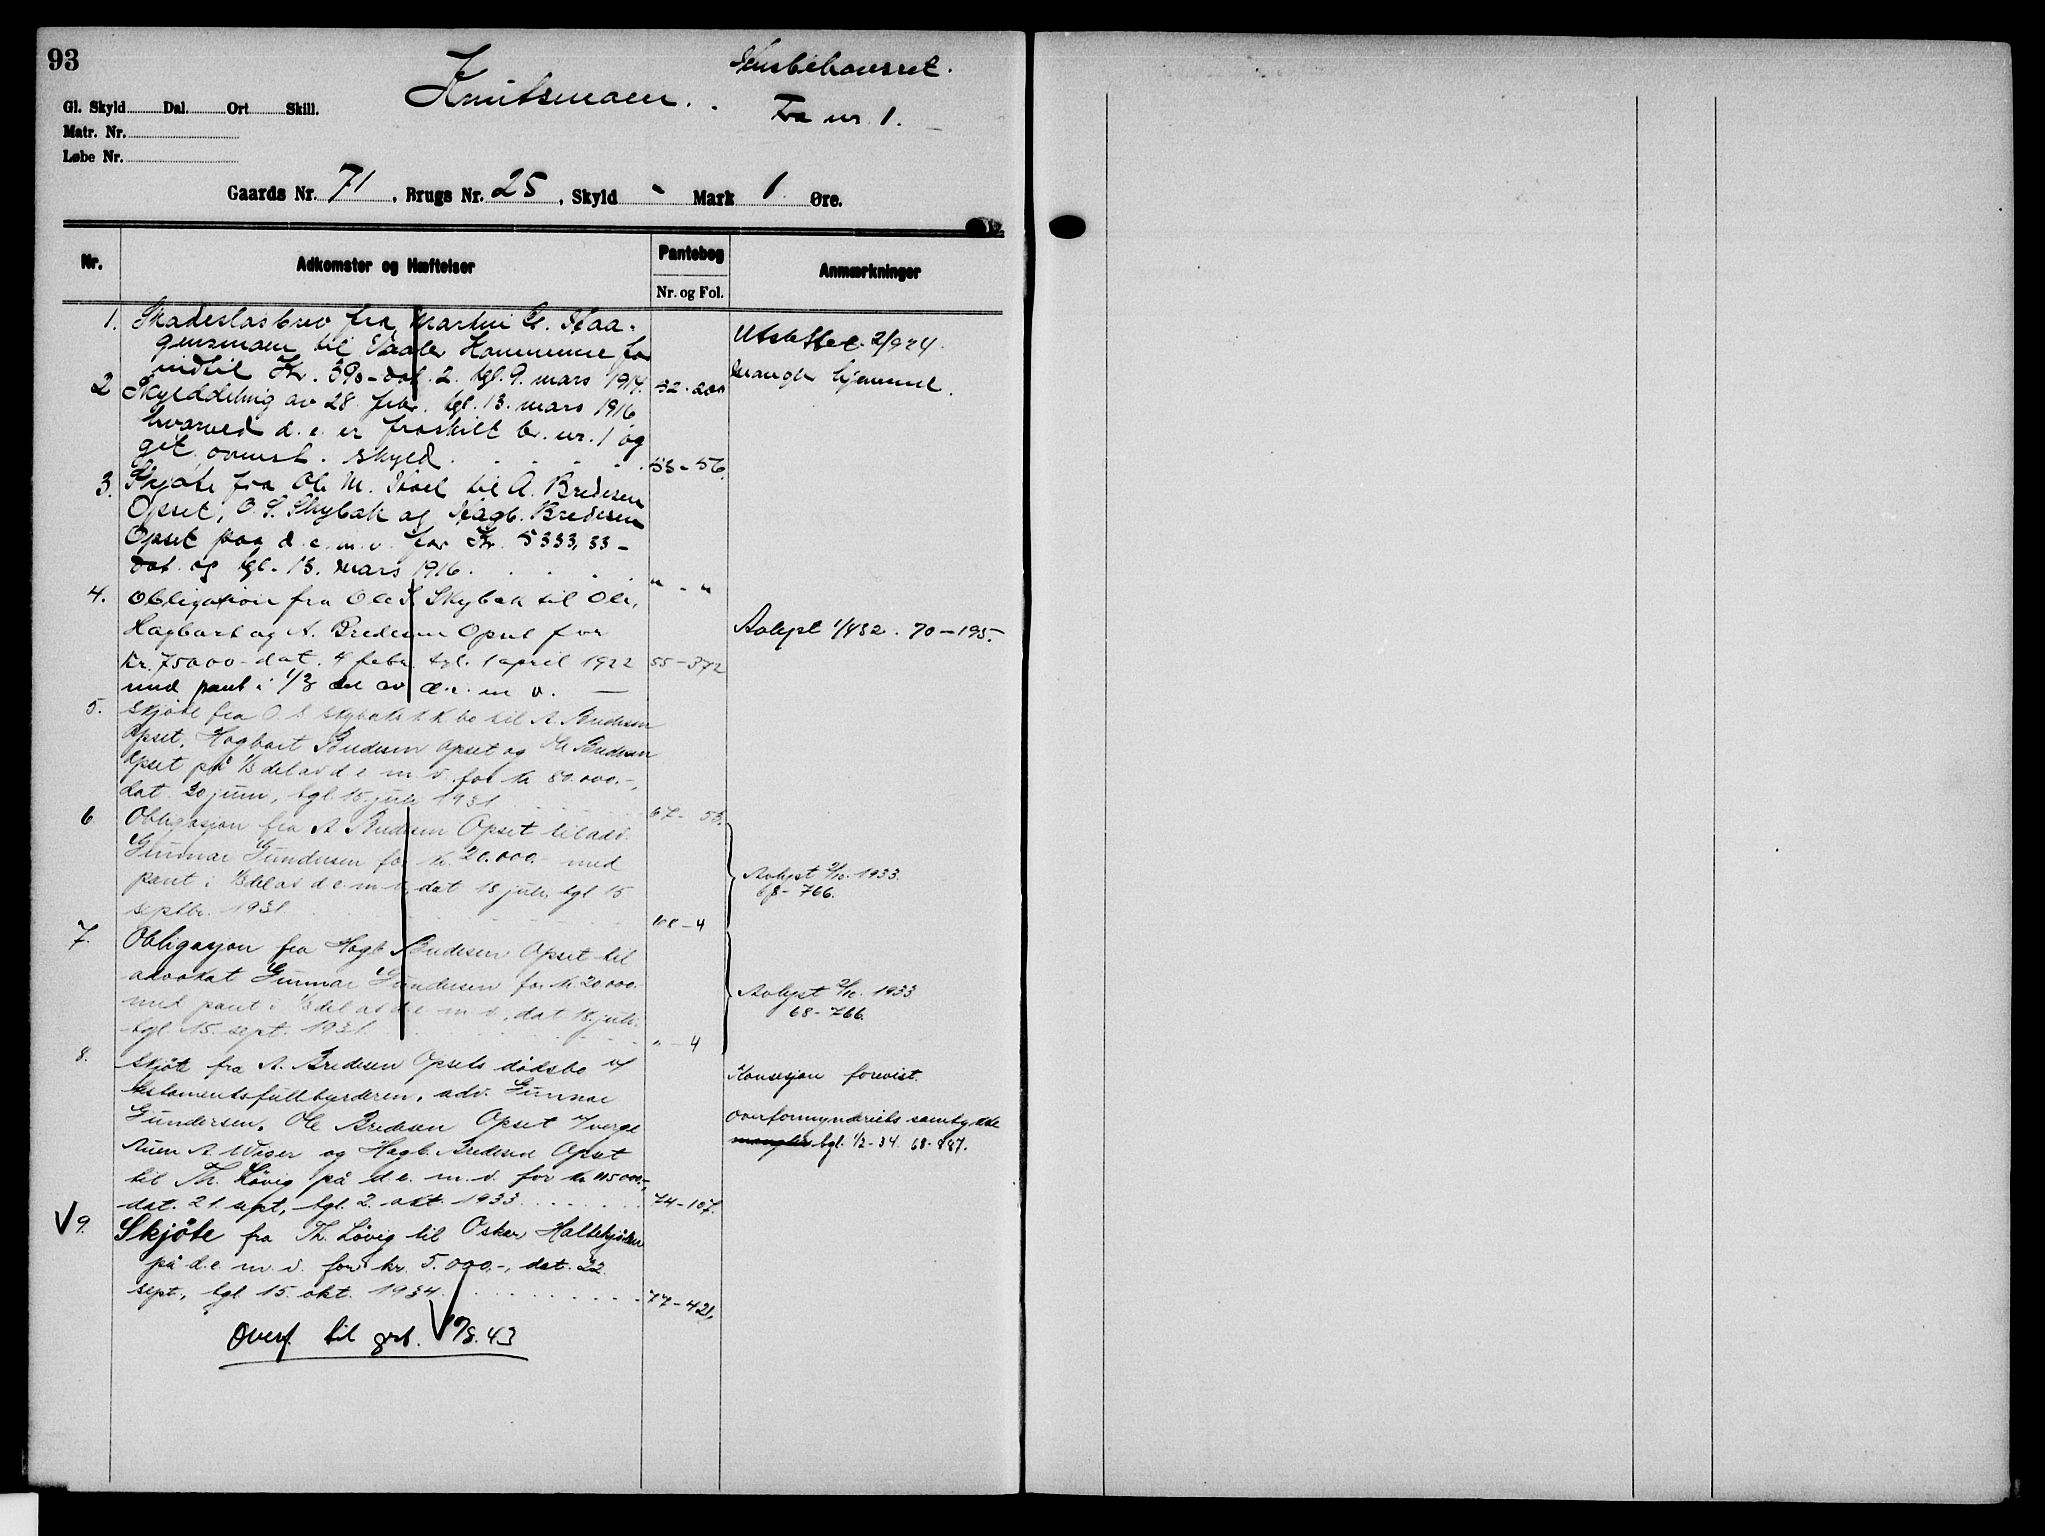 93
Knutsmoen.
Fra nr. 1.
Gl. Skyld Dal. Ort Skill.
Matr. Nr.
Løbe Nr.
Gaards Nr. 71, Brugs Nr. 25, Skyld - Mark 1 Øre.
Nr. Adkomster og Hæftelser Pantebog Anmærkninger
Nr. og Fol.
1. Skadesløsbrev fra Martin
til Vaaler Kommune for
indtil Kr. 390 - dat. 2. tgl. 9. mars 1914. 52-200
Utslettet 2/924.
mangler hjemmel.
2 Skylddeling av 28. febr. tgl. 13. mars 1916
hvorved d. e. er fraskilt br. nr. 1 og
git ovenst. skyld. 53-56.
3. Skjøte fra Ole M. til A. Bredesen
Opset, O. S. Skybak og Hagb. Bredesen
Opset paa d. e. m. v. for Kr. 5333,33 -
dat. og tgl. 13. mars 1916. " - "
4. Obligation fra Ole S. Skybak til Ole,
Hagbart og A. Bredesen Opset for
Kr. 75000 - dat. 4 febr. tgl. 1 april 1922 55-372
med pant i 1/3 del av d. e. m v. —
Avlyst 1/432. 70-195.
5. Skjøte fra O. S Skybaks k.k. bo til A. Bredesen
Opset, Hagbart Bredesen Opset og Ole Bredesen
Opset på 1/3 del av d e m v. for kr 80.000.-,
dat 20 juni, tgl. 15. juli 1931 67-
6 Obligasjon fra A Bredesen Opset til adv.
Gunnar Gundersen for kr. 20.000.- med
pant i 1/3 del av d e m v, dat 18 juli, tgl 15
septbr. 1931 108-4
Avlyst 2/10. 1933.
68-766.
7. Obligasjon fra Hagb Bredesen Opset til
advokat Gunnar Gundersen for kr. 20000.-
med pant i 1/3 del av d e m v, dat 18. juli,
tgl 15. sept. 1931 " - 4
Avlyst 2/10. 1933
68-766.
8. Skjøte fra A. Bredesen Opsets dødsbo v/
testamentsfullbyrderen, adv. Gunnar
Gundersen, Ole Bredesen Opset
A. Wiger og Hagb. Bredesen Opset
til Th. Løvig på d. e. m. v. for kr
dat. 21. sept, tgl. 2. okt. 1933 74-107.
Konsesjon forevist.
Overformynderiets samtykke
mangler tgl. 1/2-34. 68-887.
V 9. Skjøte fra Th. Løvig til Oskar
på d. e. m. v. for kr. 5.000.-, dat. 22.
sept., tgl 15. okt. 1934 77-421.
Overf. til grb. 43